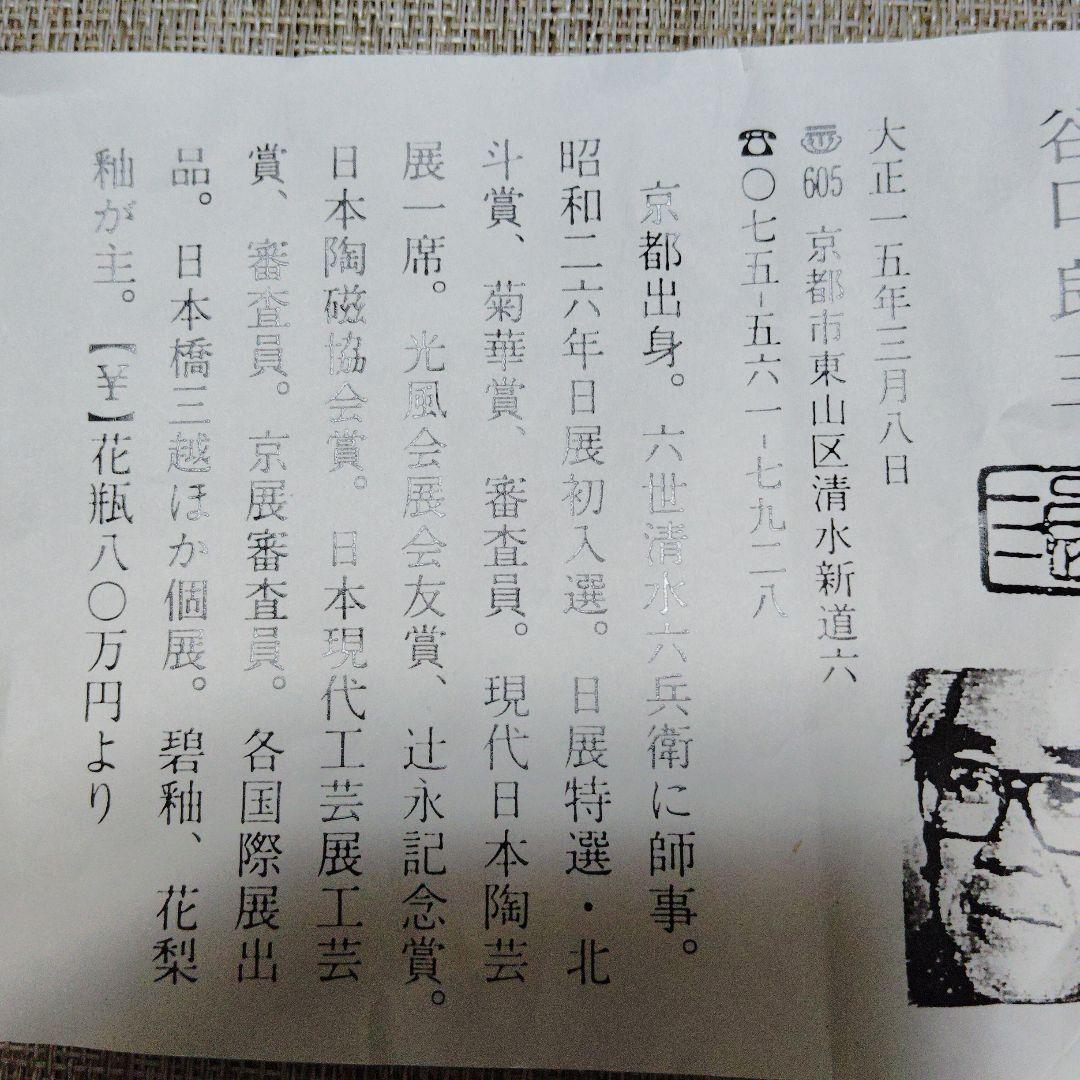 谷口良三
大正一五年三月八日
〒605 京都市東山区清水新道六
☎〇七五-五六一-七九二八
京都出身。六世清水六兵衛に師事。
昭和二六年日展初入選。日展特選・北
斗賞、菊華賞、審査員。現代日本陶芸
展一席。光風会展会友賞、辻永記念賞。
日本陶磁協会賞。日本現代工芸展工芸
賞、審査員。京展審査員。各国際展出
品。日本橋三越ほか個展。碧釉、花梨
釉が主。【¥】花瓶八〇万円より